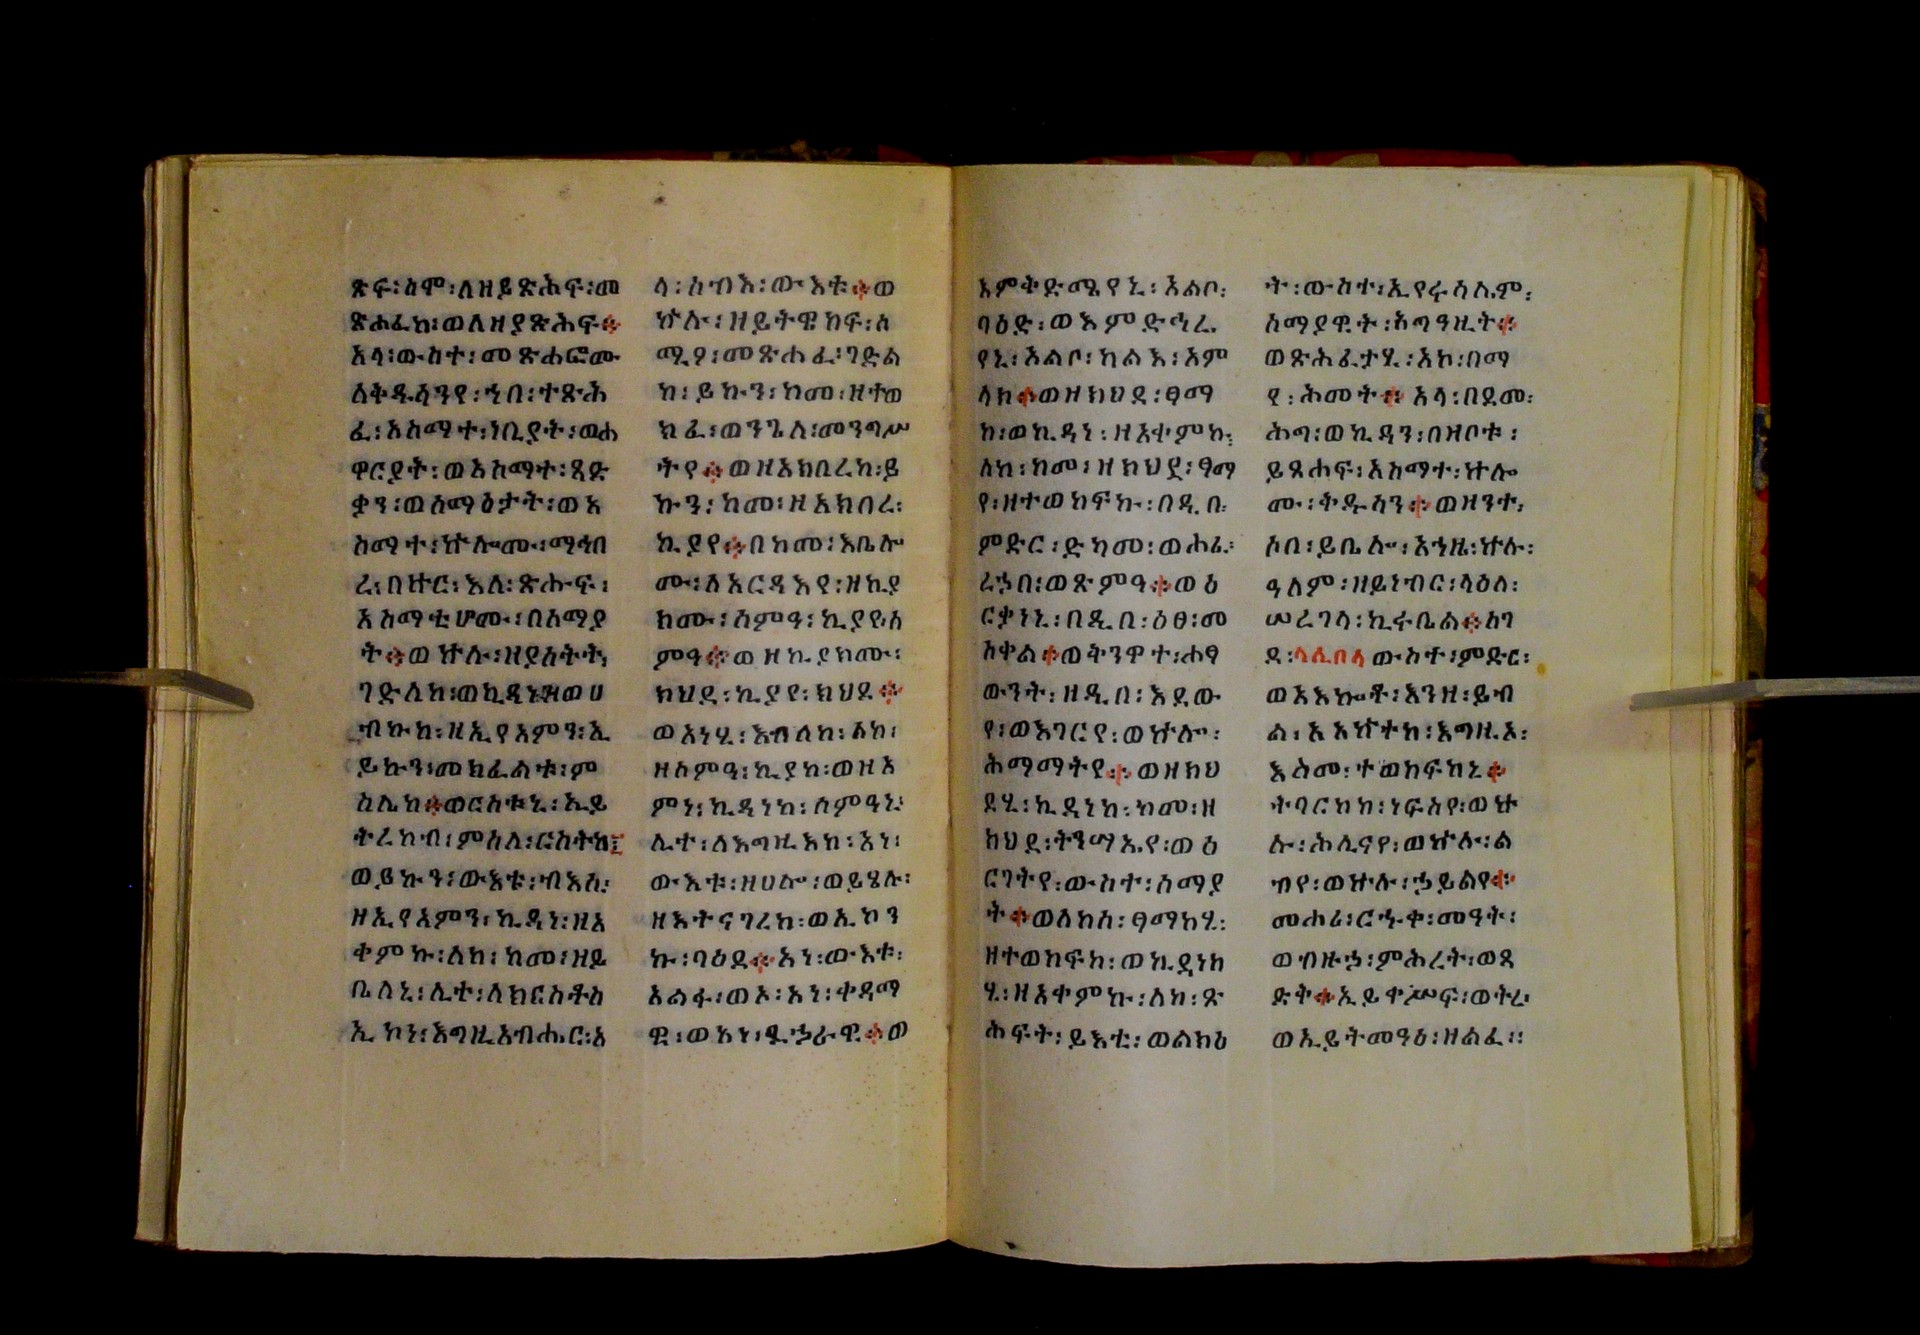 ጽፍ፡ስሞ፡ለዘይጽሕፍ፡መ
ጽሐፈከ፡ወለዘያጽሕፍ፨
አላ፡ውስተ፡መጽሐፎሙ
ለቅዱሳንየ፡ኀበ፡ተጽሕ
ፈ፡አስማተ፡ነቢያት፡ወሐ
ዋርያት፡ወአስማተ፡ጻድ
ቃን፡ወሰማዕታት፡ወአ
ስማተ፡ኵሎሙ፡ማኅበ
ረ፡በኵር፡እለ፡ጽሑፍ፡
አስማቲሆሙ፡በሰማያ
ት፨ወኵሉ፡ዘያስትት፡
ገድለከ፡ወኪዳነ፡ዘወሀ
ብኩከ፡ዘኢየአምን፡ኢ
ይኩን፡መክፈልቱ፡ም
ስሌከ፨ወርስቱኒ፡ኢይ
ትረከብ፡ምስለ፡ርስትከ፤
ወይኩን፡ውእቱ፡ብእሲ፡
ዘኢየአምን፡ኪዳነ፡ዘአ
ቀምኩ፡ለከ፡ከመ፡ዘይ
ቤለኒ፡ሊተ፡ለክርስቶስ
ኢኮነ፡እግዚአብሔር፡አ
ላ፡ሰብእ፡ውእቱ፨ወ
ኵሉ፡ዘይትዌከፍ፡ሰ
ሚዖ፡መጽሐፈ፡ገድል
ከ፡ይኩን፡ከመ፡ዘተወ
ክፈ፡ወንጌለ፡መንግሥ
ትየ፨ወዘአክበረከ፡ይ
ኩን፡ከመ፡ዘአክበረ፡
ኪያየ፨በከመ፡እቤሎ
ሙ፡ለአርዳእየ፡ዘኪያ
ክሙ፡ሰምዓ፡ኪያየ፡ሰ
ምዓ፨ወዘኪያክሙ፡
ክህደ፡ኪያየ፡ክህደ፨
ወአነሂ፡እብለከ፡ለከ፡
ዘሰምዓ፡ኪያከ፡ወዘአ
ምነ፡ኪዳነከ፡ሰምዓኒ፡
ሊተ፡ለእግዚእከ፡አነ፡
ውእቱ፡ዘሀሎ፡ወይሄሉ፡
ዘእትናገረከ፡ወኢኮን
ኩ፡ባዕደ፨አነ፡ውእቱ፡
አልፋ፡ወኦ፡አነ፡ቀዳማ
ዊ፡ወአነ፡ደኃራዊ፨ወ
እምቅድሜየኒ፡አልቦ፡
ባዕድ፡ወእምድኅረ
የኒ፡አልቦ፡ካልእ፡አም
ላክ፨ወዘክህደ፡ፃማ
ከ፡ወኪዳነ፡ዘአቀምኩ፡
ለከ፡ከመ፡ዘክህደ፡ፃማ
የ፡ዘተወከፍኩ፡በዲበ፡
ምድር፡ድካመ፡ወሑረ፡
ረኃበ፡ወጽምዓ፨ወዕ
ርቃነኒ፡በዲበ፡ዕፀ፡መ
ስቀል፨ወቅንዋተ፡ሐፃ
ውንት፡ዘዲበ፡እደው
የ፡ወእገርየ፡ወኵሎ፡
ሕማማትየ፨ወዘክህ
ደሂ፡ኪዳነከ፡ከመ፡ዘ
ክህደ፡ትንሣኤየ፡ወዕ
ርገትየ፡ውስተ፡ሰማያ
ት፨ወለከሰ፡ፃማከሂ፡
ዘተወከፍከ፡ወኪዳነከ
ሂ፡ዘአቀምኩ፡ለከ፡ጽ
ሕፍት፡ይእቲ፡ወልክዕ
ት፡ውስተ፡ኢየሩሳሌም፡
ሰማያዊት፡አግዓዚት፨
ወጽሕፈታሂ፡አኮ፡በማ
የ፡ሕመት፨አላ፡በደመ፡
ሕግ፡ወኪዳን፡በዘቦቱ፡
ይጸሐፍ፡አስማተ፡ኵሎ
ሙ፡ቅዱሳን፨ወዘንተ፡
ሶበ፡ይቤሎ፡አኀዜ፡ኵሉ፡
ዓለም፡ዘይነብር፡ላዕለ፡
ሠረገላ፡ኪሩቤል፨ሰገ
ደ፡ላሊበላ፡ውስተ፡ምድር፡
ወአእኰቶ፡እንዘ፡ይብ
ል፡አአኵተከ፡እግዚኦ፡
እስመ፡ተወከፍከኒ፨
ትባርከከ፡ነፍስየ፡ወኵ
ሉ፡ሕሊናየ፡ወኵሉ፡ል
ብየ፡ወኵሉ፡ኃይልየ፨
መሐሪ፡ርኁቀ፡መዓት፡
ወብዙኃ፡ምሕረት፡ወጻ
ድቅ፨ኢይቀሥፍ፡ወትረ፡
ወኢይትመዓዕ፡ዘልፈ።